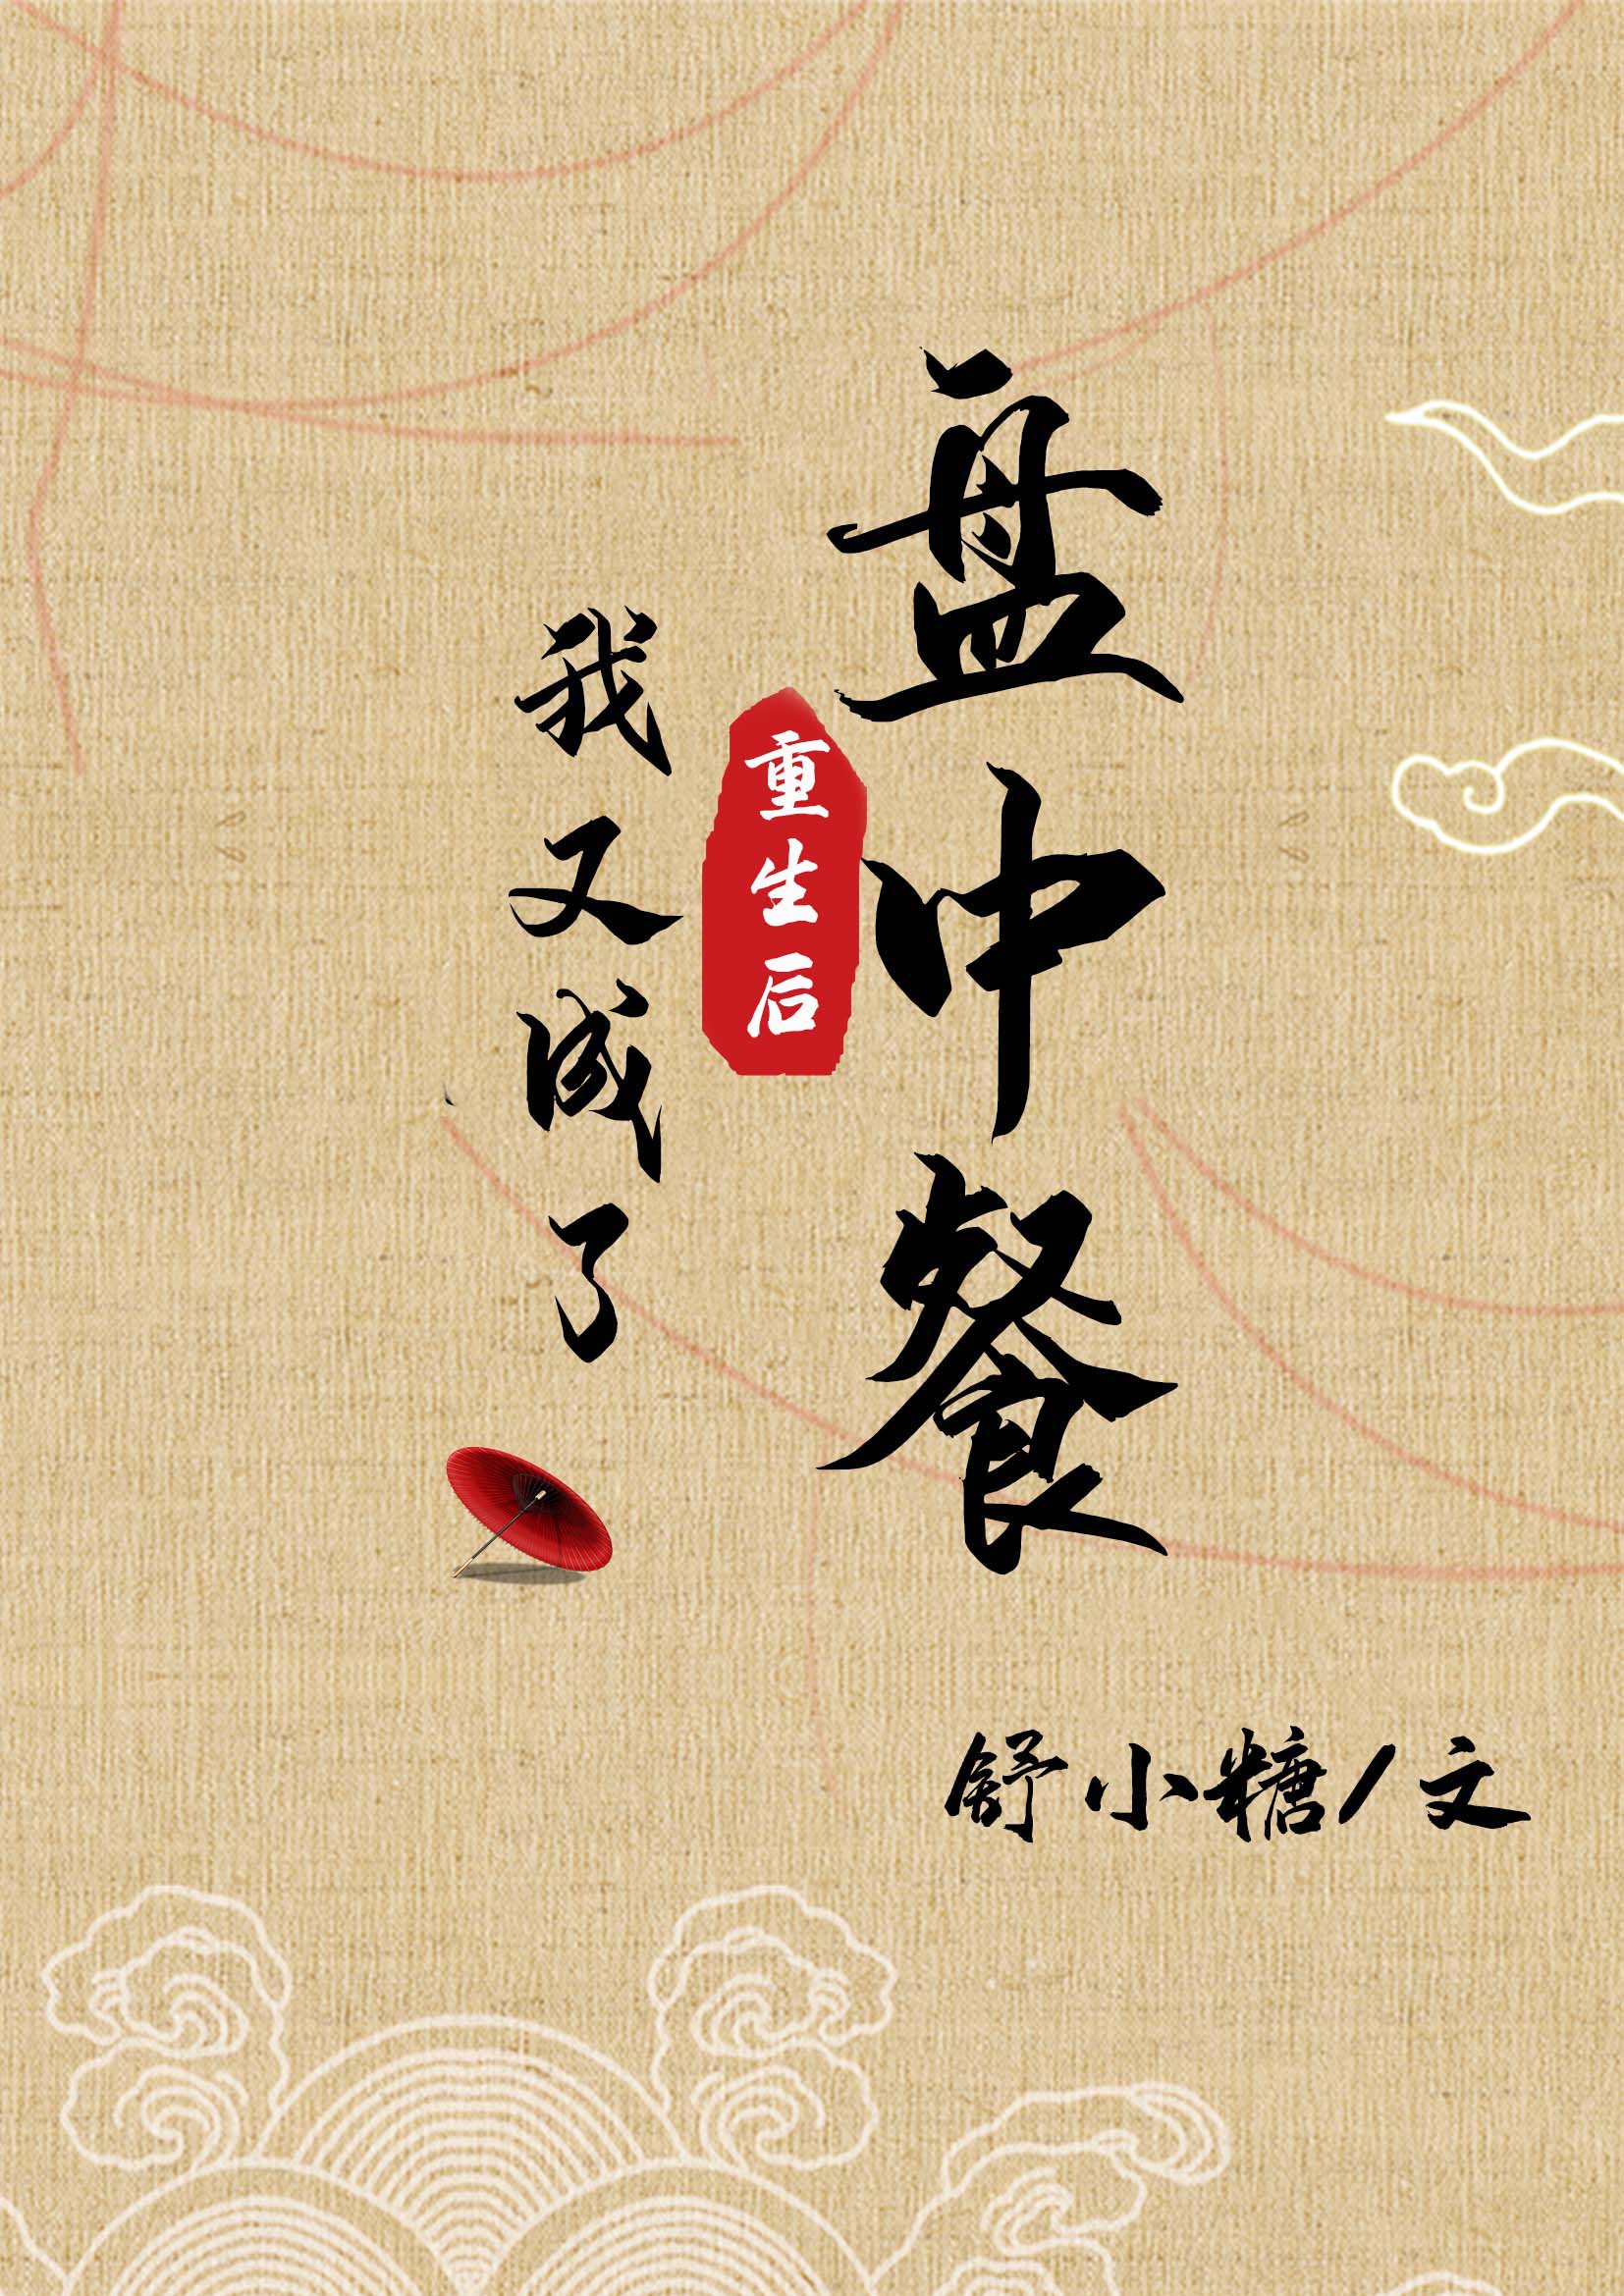 重生后
我又成了
盘中餐
舒小糖/文